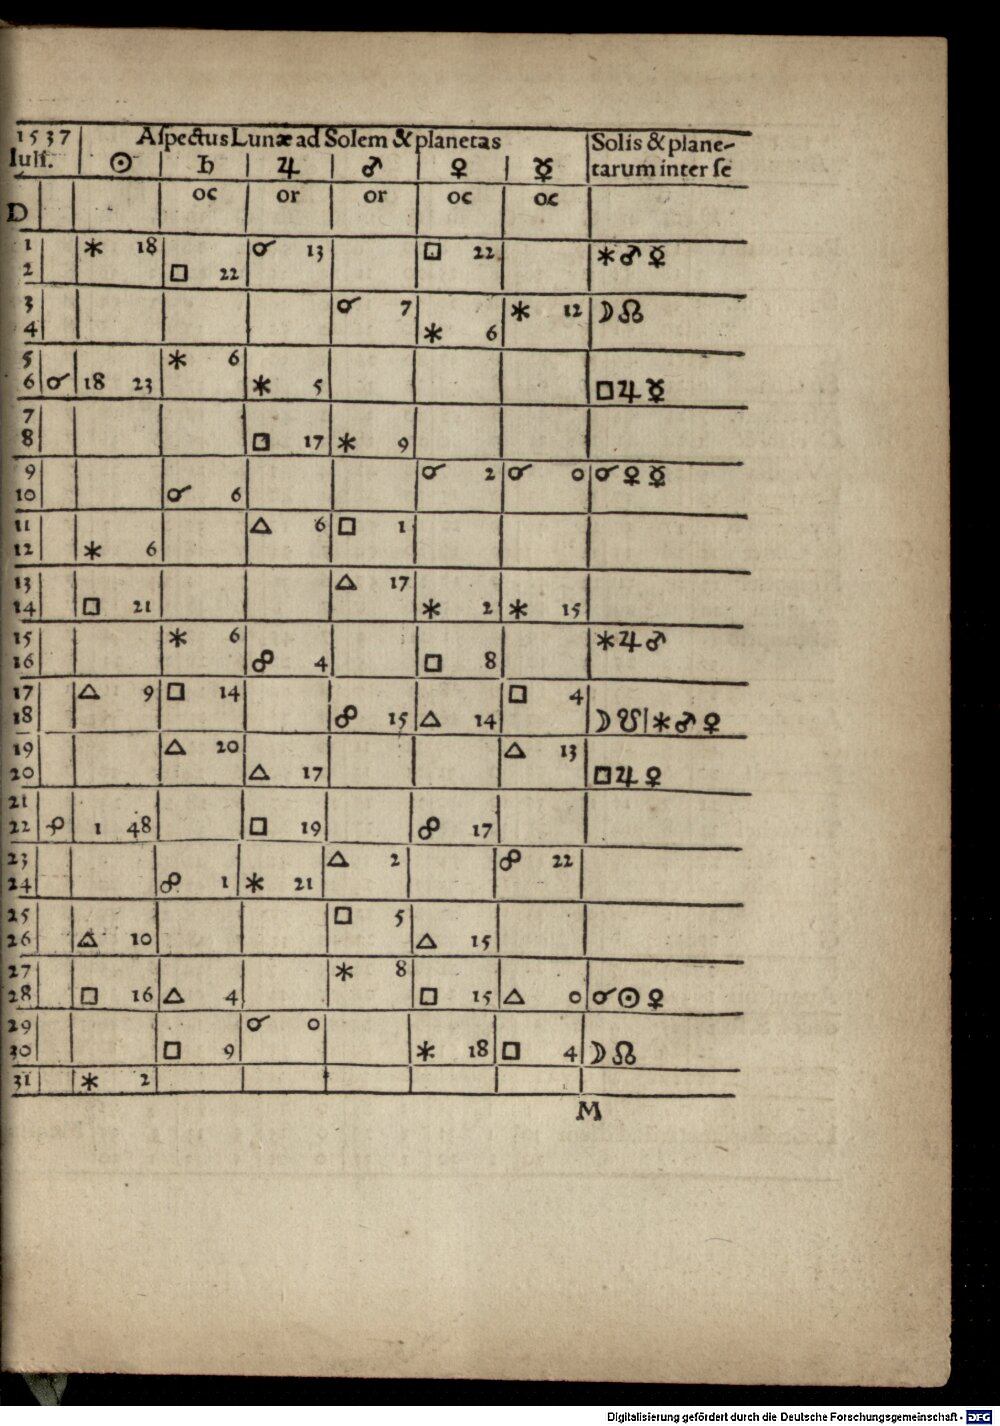 1537 Aſpectus Lunæ ad Solem & planetas Solis & plane-
Iuli. ☉ ♄ ♃ ♂ ♀ ☿ tarum inter ſe
D oc or or oc oc
1 ⚹ 18 ☌ 13 □ 22 ⚹ ♂ ☿
2 □ 22
3 ☌ 7 ⚹ 12 ☽ ☊
4 ⚹ 6
5 ⚹ 6
6 ☌ 18 23 ⚹ 5 □ ♃ ☿
7
8 □ 17 ⚹ 9
9 ☌ 2 ☌ 0 ☌ ♀ ☿
10 ☌ 6
11 △ 6 □ 1
12 ⚹ 6
13 △ 17
14 □ 21 ⚹ 2 ⚹ 15
15 ⚹ 6 ⚹ ♃ ♂
16 ☍ 4 □ 8
17 △ 9 □ 14 □ 4
18 ☍ 15 △ 14 ☽ ☋ | ⚹ ♂ ♀
19 △ 20 △ 13
20 △ 17 □ ♃ ♀
21
22 ☍ 1 48 □ 19 ☍ 17
23 △ 2 ☍ 22
24 ☍ 1 ⚹ 21
25 □ 5
26 △ 10 △ 15
27 ⚹ 8
28 □ 16 △ 4 □ 15 △ 0 ☌ ☉ ♀
29 ☌ 0
30 □ 9 ⚹ 18 □ 4 ☽ ☊
31 ⚹ 2
M
Digitalisierung gefördert durch die Deutsche Forschungsgemeinschaft - DFG